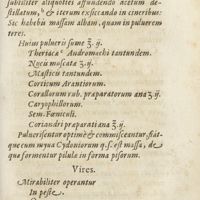 subiliter aliquoties affundendo acetum de-
stillatum, & iterum exsiccando in cineribus:
Sic habebis massam albam, quam in puluerem
teres.
Huius pulueris sume ʒ. ij.
Theriacæ Andromachi tantundem.
Nucis moscatæ ʒ. ij.
Masticis tantundem.
Corticum Arantiorum.
Corallorum rub. præparatorum ana ʒ. ij.
Caryophillorum.
Sem. Fœniculi.
Coriandri præparati ana ʒ. ij.
Puluerisentur optimè & commisceantur, fiat-
que cum myua Cydoniorum q. s. et massa, de
qua formentur pilulæ in forma pisorum.
Vires.
Mirabiliter operantur
In peste.